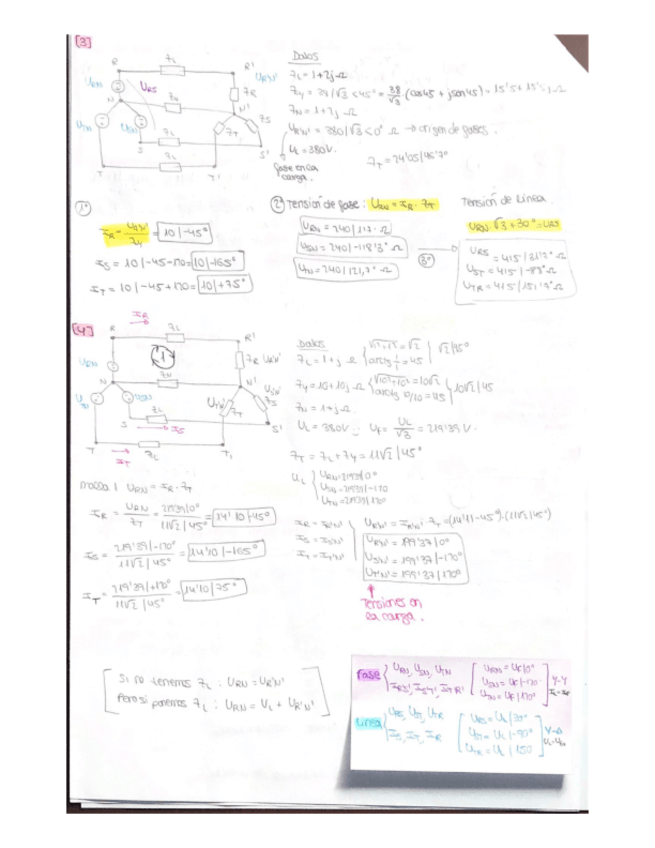 [3]
R Z_L R'
U_RN U_RS Z_R U_R'N'
N Z_N N'
U_TN U_SN Z_T Z_S
S Z_L S'
T Z_L T'
Datos
Z_L = 1+2j Ω
Z_Y = 38/√3 ∠45° = 38/√3 · (cos45 + jsen45) = 15'5 + 15'5 j Ω
Z_N = 1+2j Ω
U_R'N' = 380/√3 <0° Ω → origen de fases.
U_L = 380V.
fase en la carga.
Z_T = 24'05/46'7°
1º
I_R = U_R'N'/Z_Y = 10/-45°
I_S = 10/-45-120 = 10/-165°
I_T = 10/-45+120 = 10/+75°
2º Tensión de fase: U_RN = I_R · Z_T
U_RN = 240/1'7° Ω
U_SN = 240/-118'3° Ω
U_TN = 240/121,7° Ω
3º
Tensión de Línea.
U_RN · √3 +30° = U_RS
U_RS = 415/31'7° Ω
U_ST = 415/-88° Ω
U_TR = 415/151'7° Ω
[4]
I_R
R Z_L R'
U_RN 1 Z_R U_R'N'
N Z_N N'
U_TN U_SN U_T'N' Z_T U_S'N' Z_S
S Z_L I_S S'
T I_T Z_L T'
Datos
Z_L = 1+j Ω √1²+1² = √2 arctg 1/1 = 45 √2/45°
Z_Y = 10+10j Ω √10²+10² = 10√2 arctg 10/10 = 45 10√2/45
Z_N = 1+j Ω
U_L = 380V U_F = U_L/√3 = 219'39 V.
Z_T = Z_L + Z_Y = 11√2/45°
U_L
U_RN = 219'39/0°
U_SN = 219'39/-120
U_TN = 219'39/120°
malla 1 U_RN = I_R · Z_T
I_R = U_RN/Z_T = 219'39/0° / 11√2/45° = 14'10/-45°
I_S = 219'39/-120° / 11√2/45° = 14'10/-165°
I_T = 219'39/+120° / 11√2/45° = 14'10/75°
I_R = I_R'N'
I_S = I_S'N'
I_T = I_T'N'
U_R'N' = I_R'N' · Z_T = (14'1/-45°) · (11√2/45°)
U_R'N' = 199'37/0°
U_S'N' = 199'37/-120°
U_T'N' = 199'37/120°
Tensiones en la carga.
Si no tenemos Z_L : U_RN = U_R'N'
Pero si ponemos Z_L : U_RN = U_L + U_R'N'
Fase U_RN, U_SN, U_TN
U_RN = U_F/0°
U_SN = U_F/-120
U_TN = U_F/120°
Y-Y
Línea U_RS, U_ST, U_TR
I_S, I_T, I_R
U_RS = U_L/30°
U_ST = U_L/-90°
U_TR = U_L/150
Y-Δ